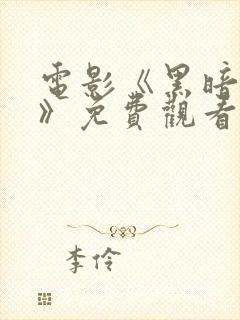 電影《黑暗
》免費觀看
李伶